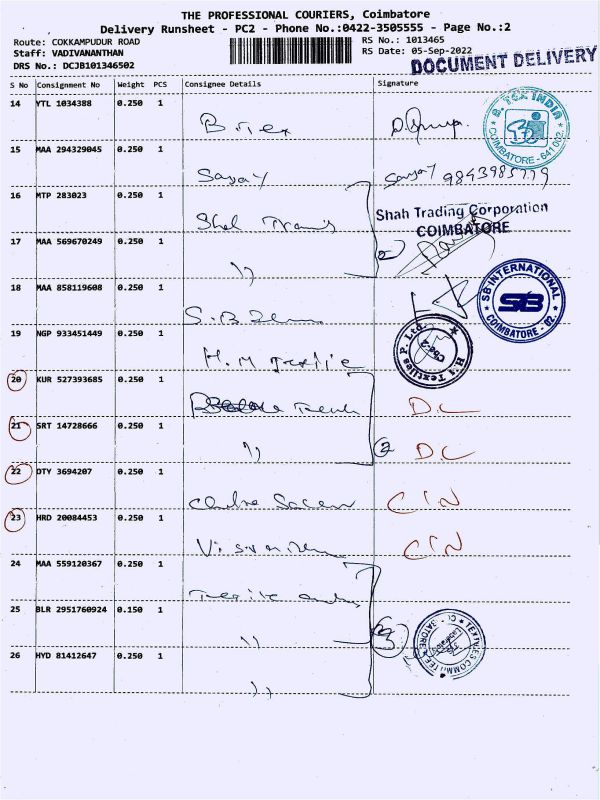 THE PROFESSIONAL COURIERS, Coimbatore
Delivery Runsheet - PC2 - Phone No.:0422-3505555 - Page No.:2
Route: COKKAMPUDUR ROAD
Staff: VADIVANANTHAN
DRS No.: DCJB101346502
RS No.: 1013465
RS Date: 05-Sep-2022
DOCUMENT DELIVERY
S No Consignment No Weight PCS Consignee Details Signature
14 YTL 1034388 0.250 1
B. TEX INDIA
COIMBATORE - 641 002.
15 MAA 294329045 0.250 1
Sanjay Sanjay 9843985779
16 MTP 283023 0.250 1
Shah Trading Corporation
COIMBATORE
17 MAA 569670249 0.250 1
"
2
18 MAA 858119608 0.250 1
S.B.
SB INTERNATIONAL
SIB
COIMBATORE - 02.
19 NGP 933451449 0.250 1
H.M Textile
Textiles P. Ltd.
Cbe-2
20 KUR 527393685 0.250 1
D.L
21 SRT 14728666 0.250 1
" 2 D.L
22 DTY 3694207 0.250 1
CIN
23 HRD 20084453 0.250 1
CIN
24 MAA 559120367 0.250 1
25 BLR 2951760924 0.150 1
" 3
TEXTILES COMMITTEE
26 HYD 81412647 0.250 1
"